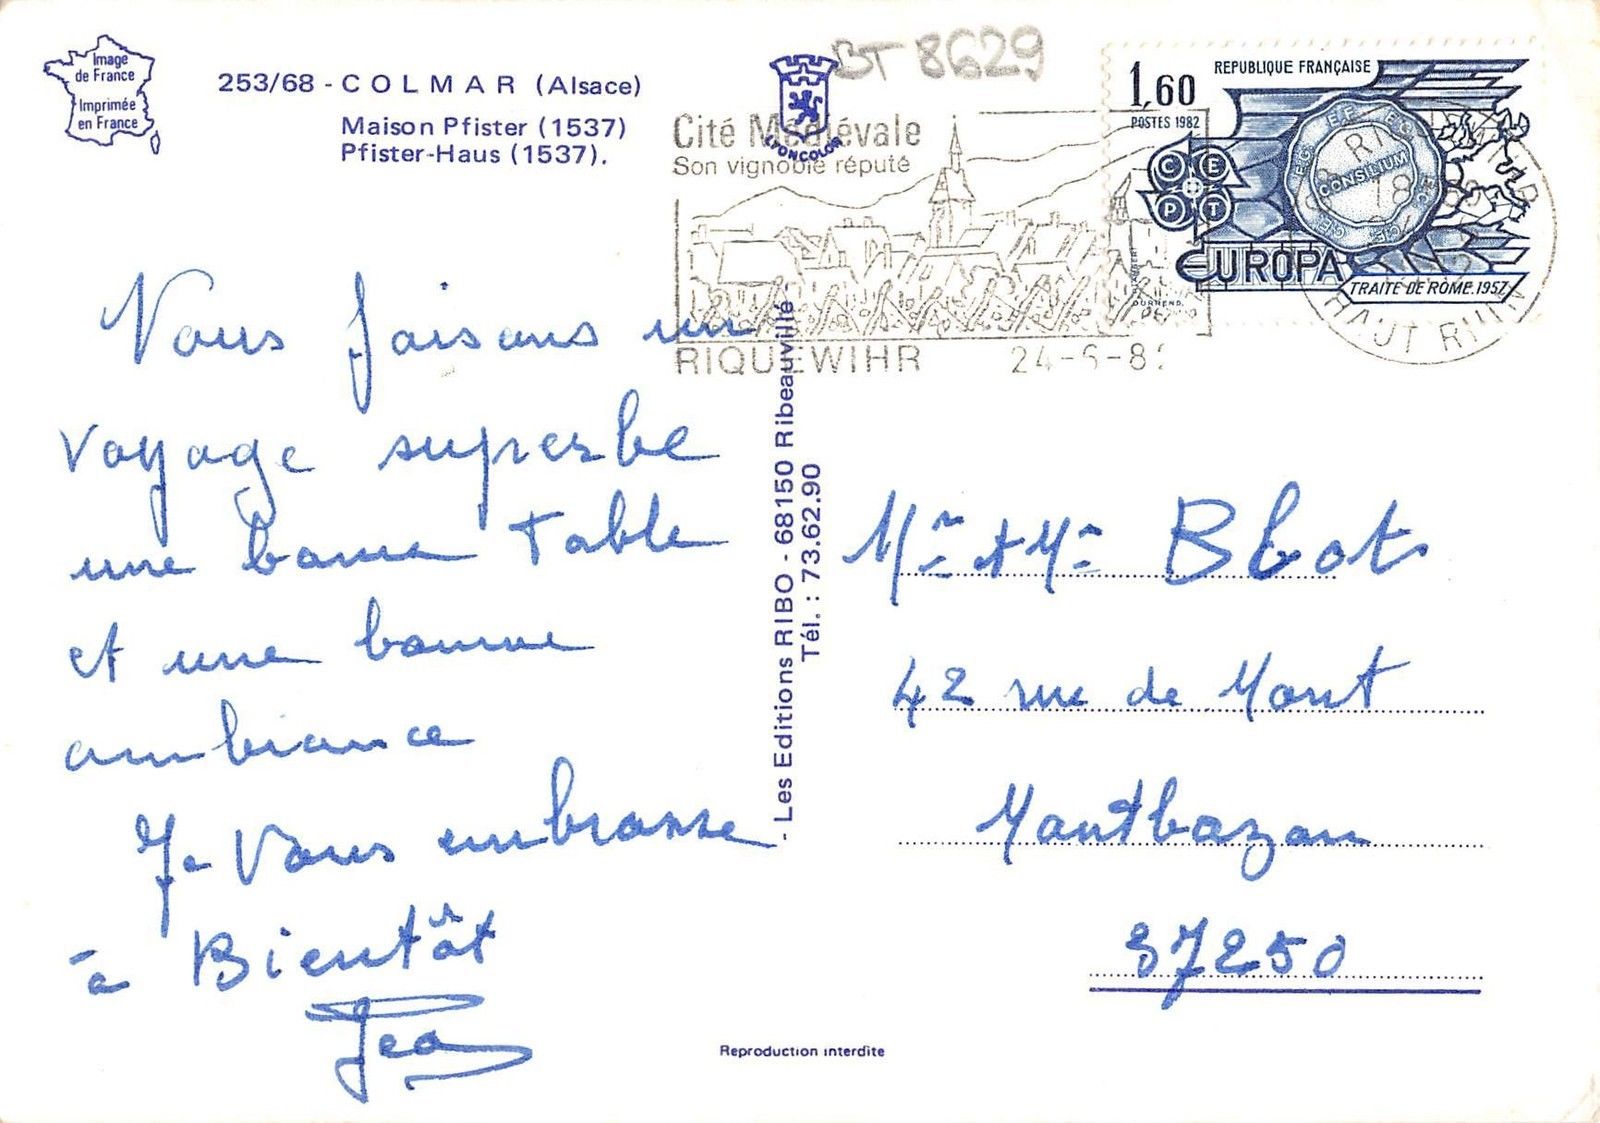 Image
de France
Imprimée
en France
253/68 - COLMAR (Alsace)
Maison Pfister (1537)
Pfister-Haus (1537).
BT 8629
LYONCOLOR
Cité Médiévale
Son vignoble réputé
RIQUEWIHR 24-6-82
1,60 REPUBLIQUE FRANÇAISE
POSTES 1982
CEPT
CONSILIUM
EUROPA
TRAITE DE ROME.1957
DURRENS
RIQUEWIHR
18
HAUT RHIN
Nous faisons un
voyage superbe
une bonne Table
et une bonne
ambiance
Je Vous embrasse
à Bientôt
Jea
- Les Editions RIBO - 68150 Ribeauvillé -
Tél. : 73.62.90
Mr & Me Blot
42 rue de Mont
Montbazon
37250
Reproduction interdite